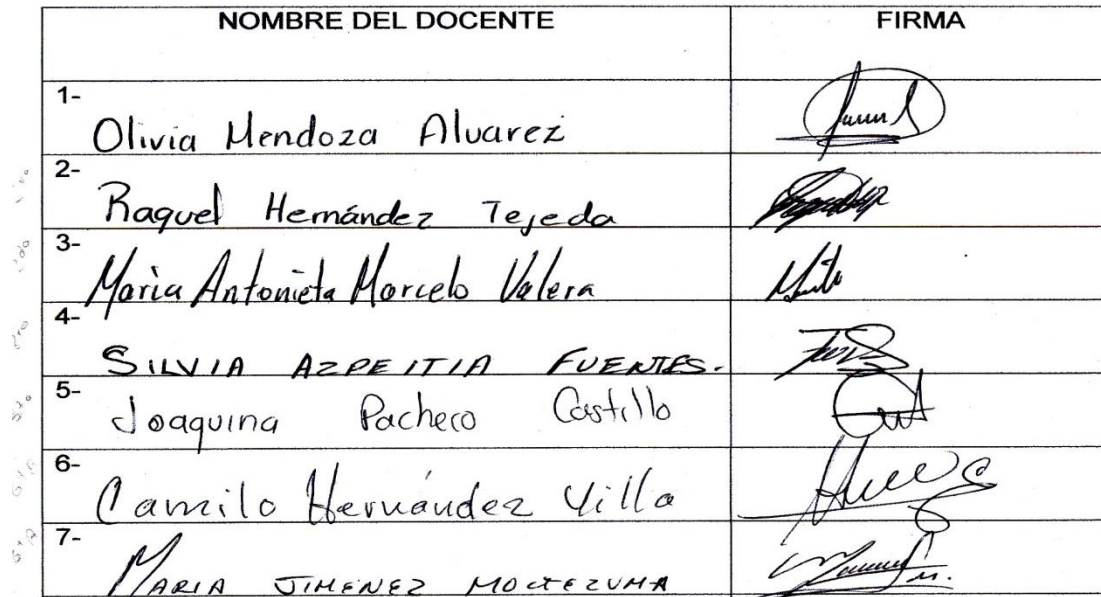 NOMBRE DEL DOCENTE FIRMA
1-
Olivia Mendoza Alvarez
2-
Raquel Hernández Tejeda
3-
Maria Antonieta Marcelo Valera
4-
SILVIA AZPEITIA FUENTES.
5-
Joaquina Pacheco Castillo
6-
Camilo Hernández Villa
7-
MARIA JIMENEZ MOCTEZUMA